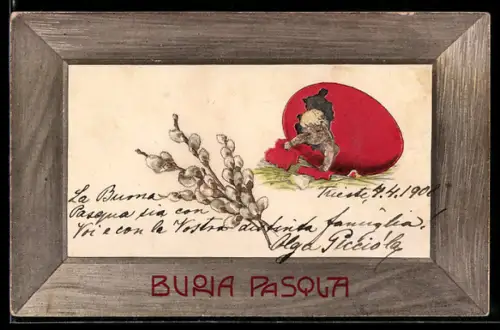 Trieste, 7.4.190
La Buona
Pasqua sia con
Voi e con la Vostra distinta famiglia!
Olga
BUONA PASQUA